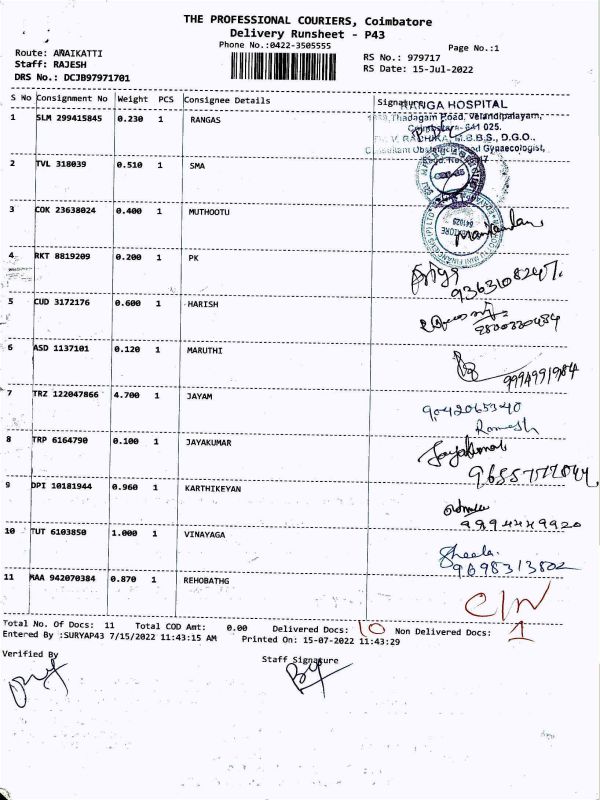 THE PROFESSIONAL COURIERS, Coimbatore
Delivery Runsheet - P43
Phone No.:0422-3505555
Page No.:1
Route: ANAIKATTI
RS No.: 979717
Staff: RAJESH
RS Date: 15-Jul-2022
DRS No.: DCJB97971701
S No Consignment No Weight PCS Consignee Details Signature
RANGA HOSPITAL
Thadagam Road, Velandipalayam,
Coimbatore-641 025.
RADHIKA, M.B.B.S., D.G.O.,
Consultant Obstetrician and Gynaecologist,
1 SLM 299415845 0.230 1 RANGAS
2 TVL 318039 0.510 1 SMA
3 COK 23638024 0.400 1 MUTHOOTU
Manikandan
4 RKT 8819209 0.200 1 PK
9363108247.
5 CUD 3172176 0.600 1 HARISH
6 ASD 1137101 0.120 1 MARUTHI
9994991984
7 TRZ 122047866 4.700 1 JAYAM
9042065340
Ramesh
8 TRP 6164790 0.100 1 JAYAKUMAR
Jayakumar
9 DPI 10181944 0.960 1 KARTHIKEYAN
9994449920
10 TUT 6103850 1.000 1 VINAYAGA
Sheela.
9698313802
11 MAA 942070384 0.870 1 REHOBATHG
C/N
Total No. Of Docs: 11 Total COD Amt: 0.00 Delivered Docs: 10 Non Delivered Docs: 1
Entered By :SURYAP43 7/15/2022 11:43:15 AM Printed On: 15-07-2022 11:43:29
Verified By
Staff Signature